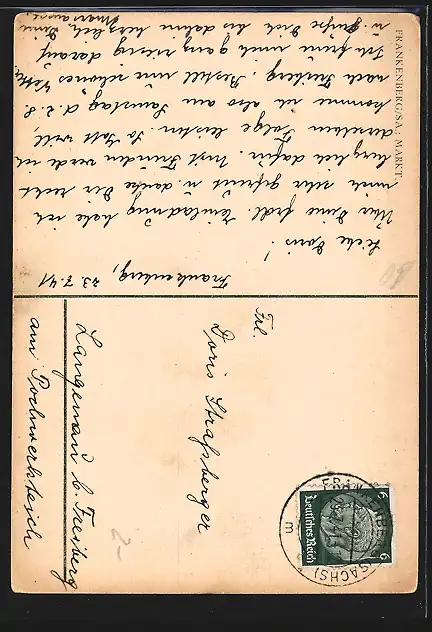 FRANKENBERG/SA.: MARKT.
Frankenberg, 23.7.41
Liebe Doris!
Über Deine frdl. Einladung habe ich
mich sehr gefreut u. danke Dir recht
herzlich dafür. Mit Freuden werde ich
derselben Folge leisten. So Gott will,
komme ich also am Samstag d. 2. 8.
nach Freiberg. Bestell nur schönes Wetter.
Ich freue mich ganz riesig darauf
u. grüße Dich bis dahin herzlich, Deine
Frl.
Doris Straßberger
Langenau b. Freiberg
am Pochwerkteich
FRANKENBERG (SACHS)
m
Deutsches Reich
6 6
2-